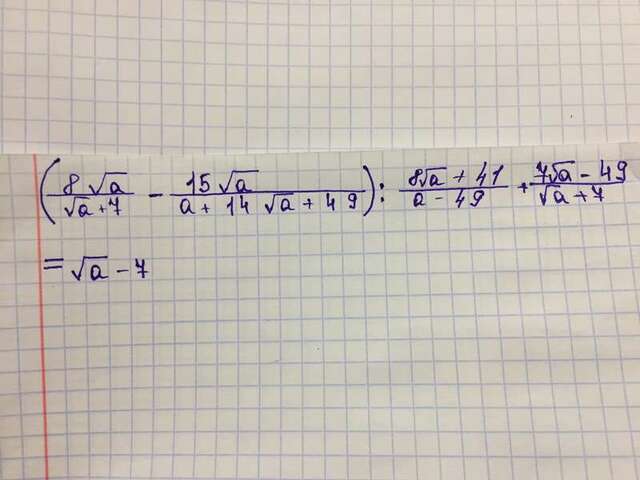 (8√a/(√a+7) - 15√a/(a + 14√a + 49)) : (8√a + 41)/(a - 49) + (7√a - 49)/(√a + 7)
= √a - 7